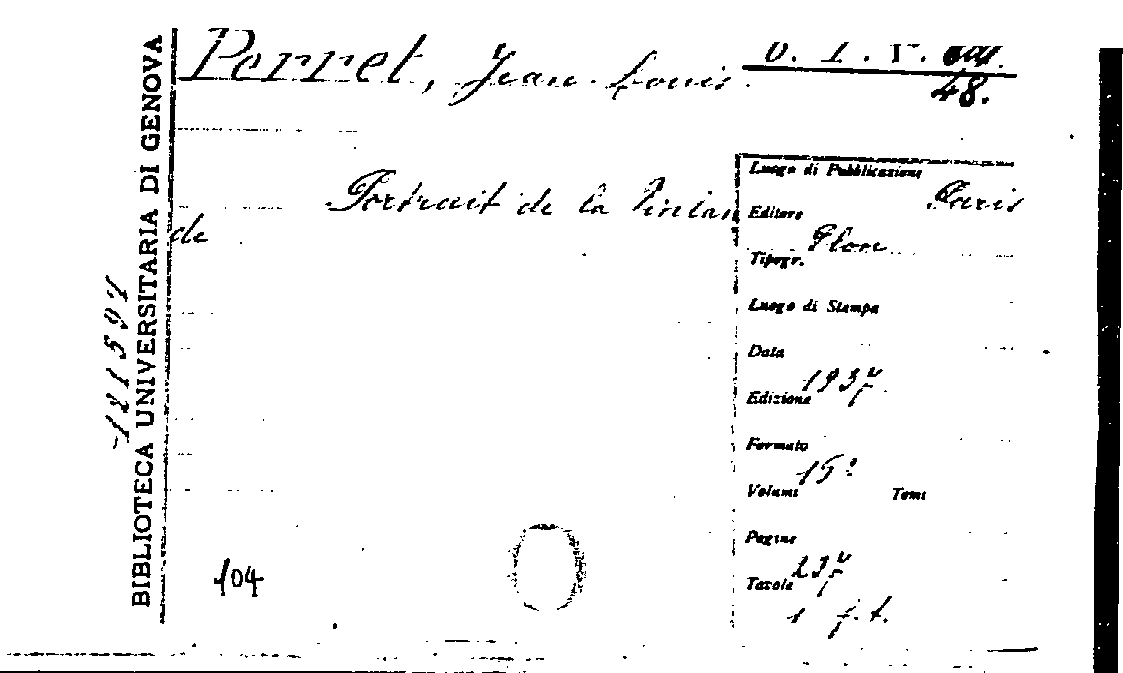 Perret, Jean-Louis
48.
Portrait de la Finlan
de
BIBLIOTECA UNIVERSITARIA DI GENOVA
104
Luogo di Pubblicazione Paris
Editore Plon
Tipogr.
Luogo di Stampa
Data 1937
Edizione
Formato 15º
Volumi Tomi
Pagine 237
Tavole 1 f.t.